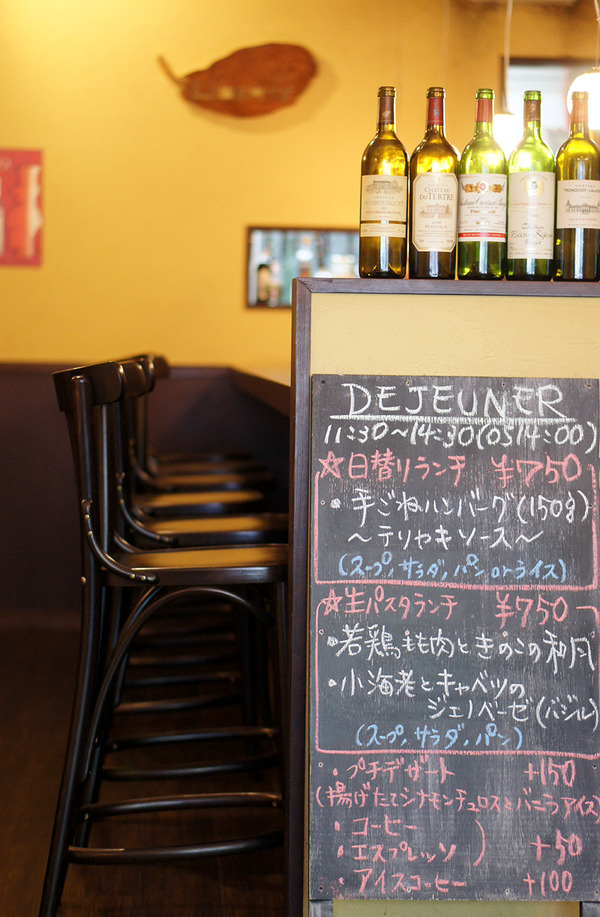 CHATEAU
DU TERTRE
DEJEUNER
11:30~14:30(OS14:00)
☆日替りランチ ¥750
・手ごねハンバーグ(150g)
~テリヤキソース~
(スープ,サラダ,パン orライス)
☆生パスタランチ ¥750
・若鶏もも肉ときのこの和風
・小海老とキャベツの
ジェノベーゼ(バジル)
(スープ,サラダ,パン)
・プチデザート +150
(揚げたてシナモンチュロスとバニラアイス)
・コーヒー
・エスプレッソ ) +50
・アイスコーヒー +100